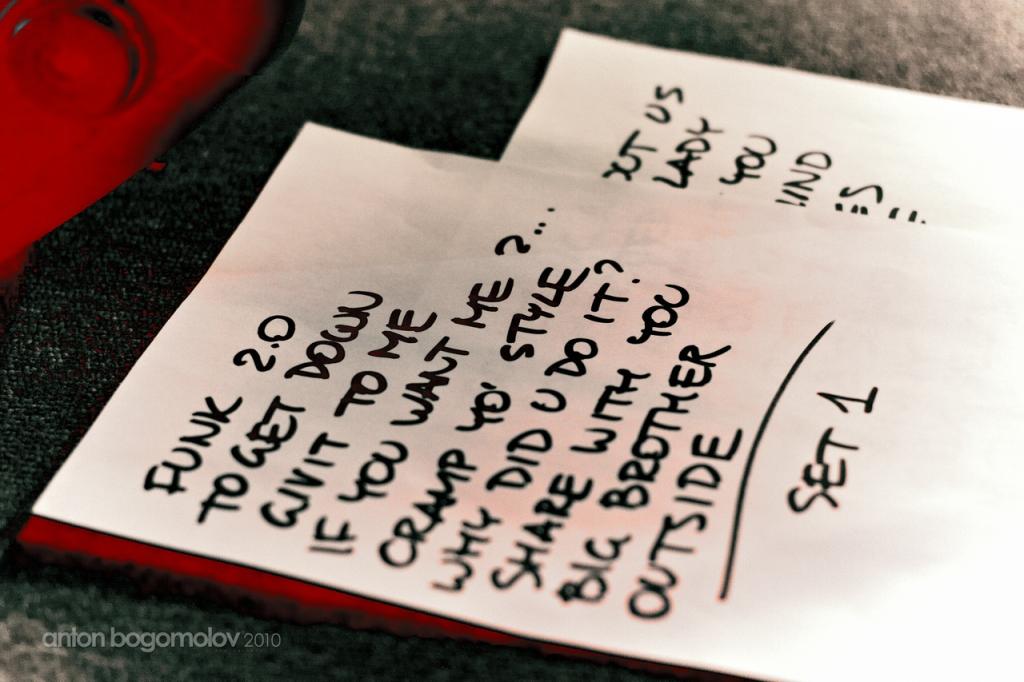 FUNK 2.0
TO GET DOWN
GIVIT TO ME
IF YOU WANT ME ?...
CRAMP YO' STYLE
WHY DID U DO IT?
SHARE WITH YOU
BIG BROTHER
OUTSIDE
SET 1
US
LADY
YOU
anton bogomolov 2010